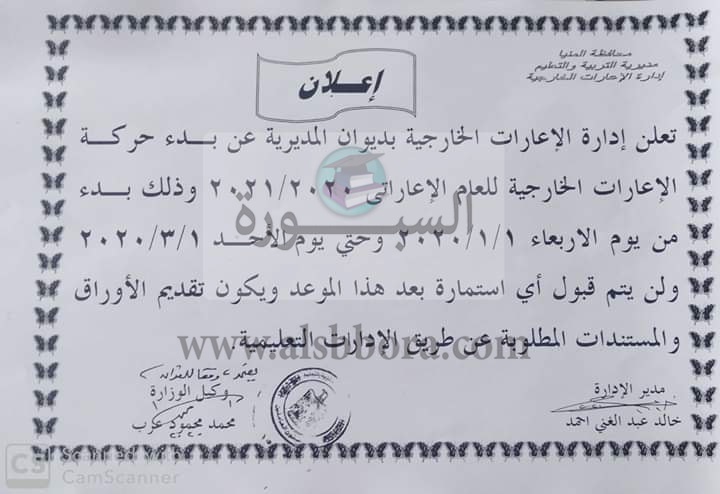 محافظة المنيا
مديرية التربية والتعليم
إدارة الإعارات الخارجية
إعلان
تعلن إدارة الإعارات الخارجية بديوان المديرية عن بدء حركة
الإعارات الخارجية للعام الإعاراتى ٢٠٢١/٢٠٢٠ وذلك بدء
من يوم الاربعاء ٢٠٢٠/١/١ وحتي يوم الأحد ٢٠٢٠/٣/١
ولن يتم قبول أي استمارة بعد هذا الموعد ويكون تقديم الأوراق
والمستندات المطلوبة عن طريق الإدارات التعليمية.
السبورة
www.alsbbora.com
مدير الإدارة
خالد عبد الغني احمد
يعتمد،
وكيل الوزارة
محمد محمود عزب
CS Scanned with
CamScanner